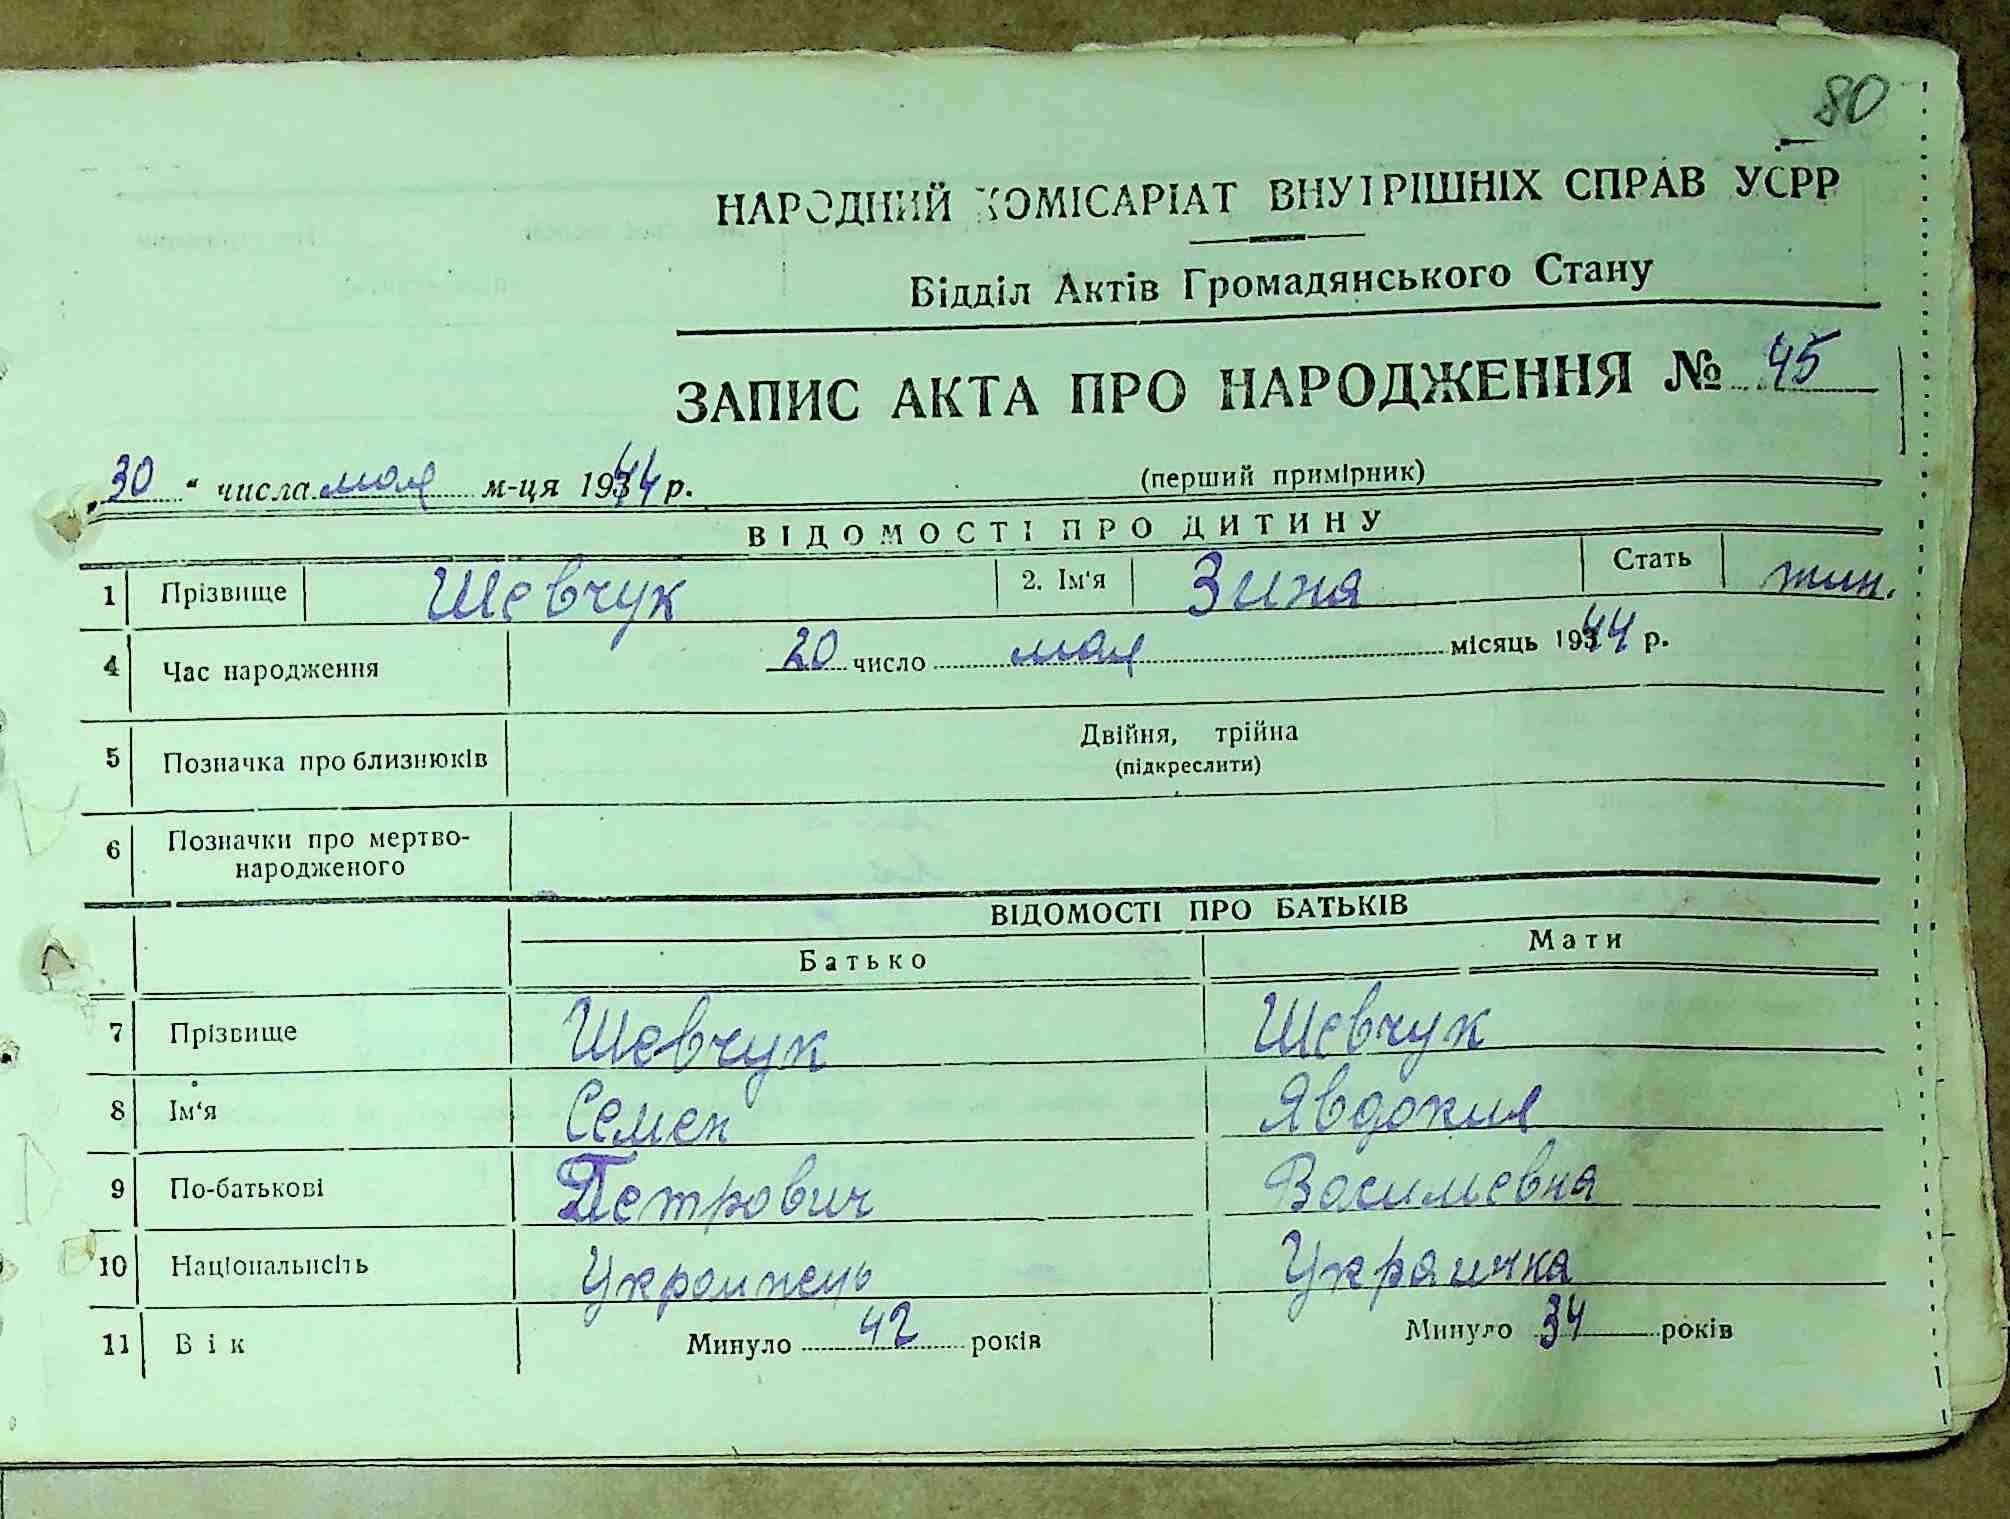 80
НАРОДНИЙ КОМІСАРІАТ ВНУТРІШНІХ СПРАВ УСРР
Відділ Актів Громадянського Стану
ЗАПИС АКТА ПРО НАРОДЖЕННЯ № 45
„30“ числа мая м-ця 1944 р. (перший примірник)
ВІДОМОСТІ ПРО ДИТИНУ
1 Прізвище Шевчук 2. Ім'я Зиня Стать жин.
4 Час народження 20 число мая місяць 1944 р.
5 Позначка про близнюків Двійня, трійна
(підкреслити)
6 Позначки про мертво-
народженого
ВІДОМОСТІ ПРО БАТЬКІВ
Батько Мати
7 Прізвище Шевчук Шевчук
8 Ім'я Семен Явдокия
9 По-батькові Петрович Васильевна
10 Національність Украинець Украинка
11 Вік Минуло 42 років Минуло 34 років